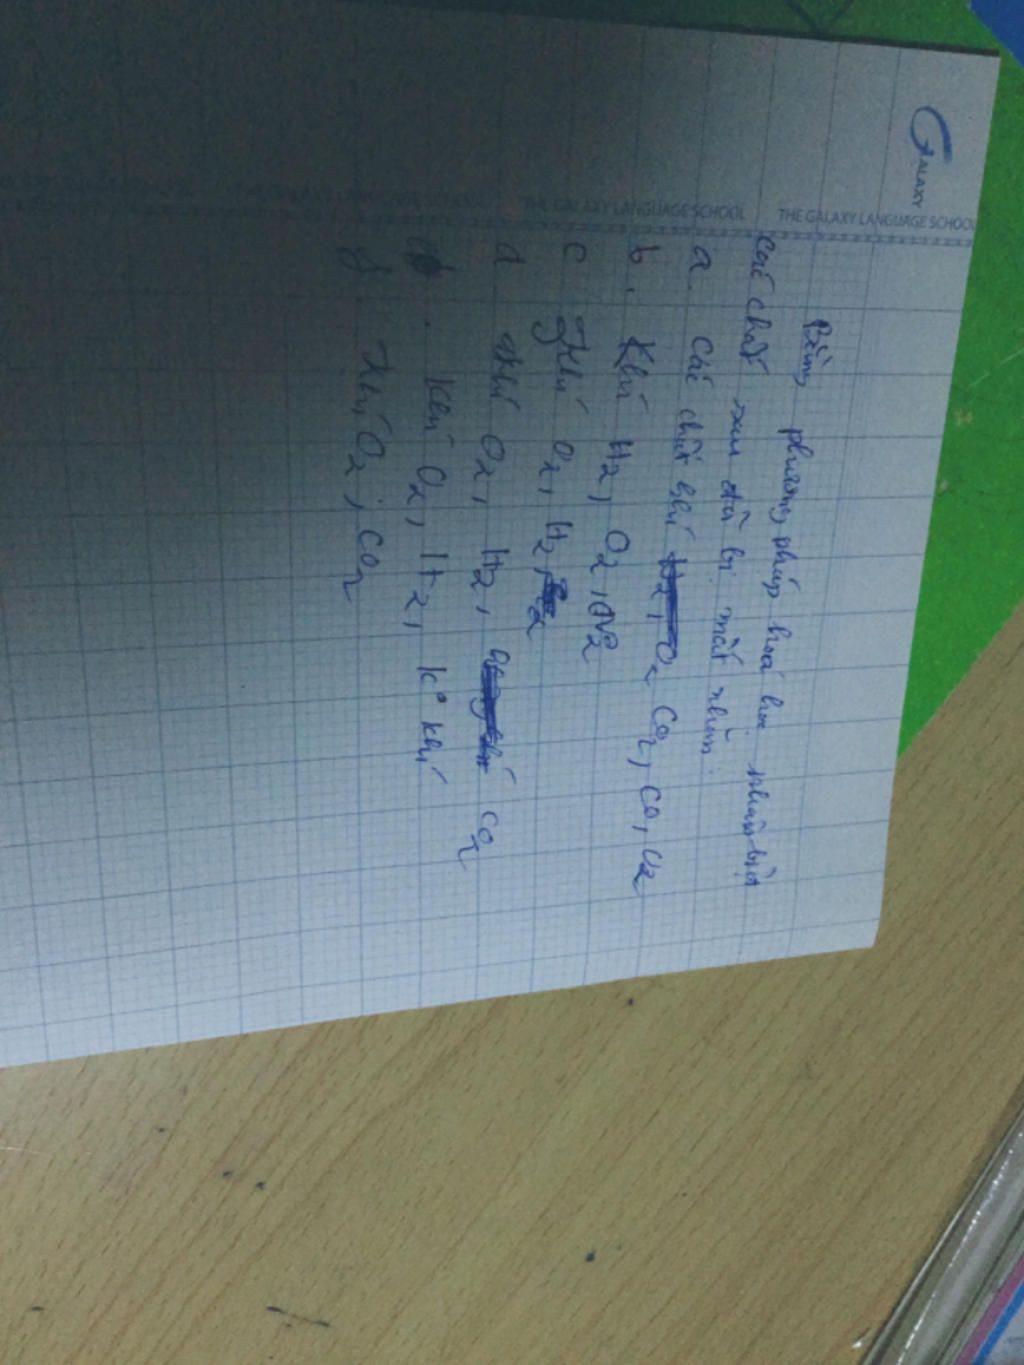 GALAXY
THE GALAXY LANGUAGE SCHOOL THE GALAXY LANGUAGE SCHOOL
Bằng phương pháp hoá học nhận biết
các chất sau đã bị mất nhãn.
a. Các chất khí CO2, CO, O2
b. Khí H2, O2, N2
c Khí O2, H2
d Khí O2, H2, CO2
Khí O2, H2, k° khí
Khí O2, CO2